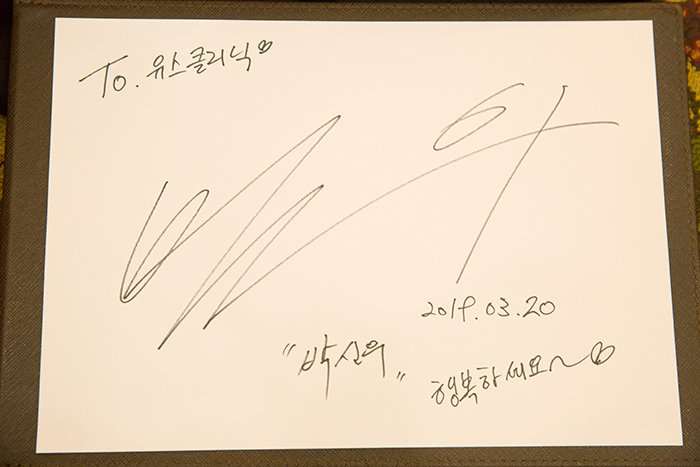 To. 유스클리닉♡
2019.03.20
"박신우"
행복하세요~♡